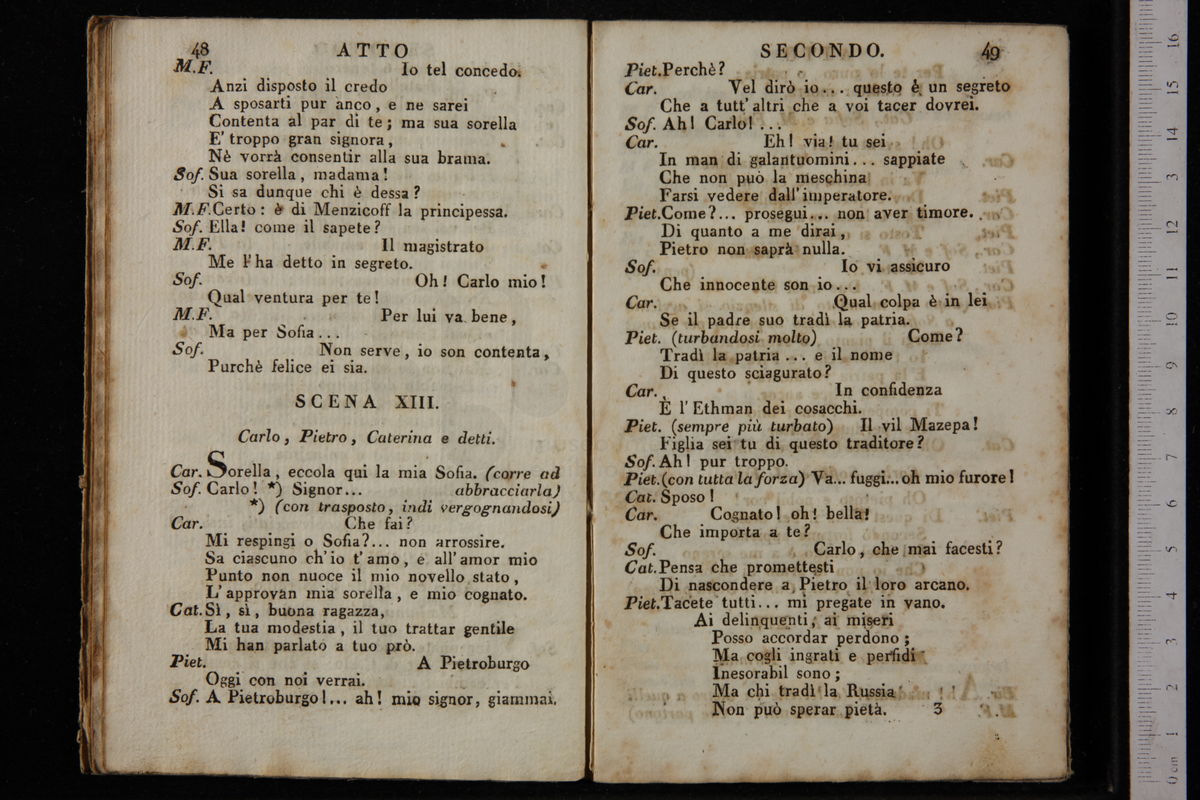 48 ATTO
M.F. Io tel concedo.
Anzi disposto il credo
A sposarti pur anco, e ne sarei
Contenta al par di te; ma sua sorella
E' troppo gran signora,
Nè vorrà consentir alla sua brama.
Sof. Sua sorella, madama!
Si sa dunque chi è dessa?
M.F. Certo: è di Menzicoff la principessa.
Sof. Ella! come il sapete?
M.F. Il magistrato
Me l'ha detto in segreto.
Sof. Oh! Carlo mio!
Qual ventura per te!
M.F. Per lui va bene,
Ma per Sofia...
Sof. Non serve, io son contenta,
Purchè felice ei sia.
SCENA XIII.
Carlo, Pietro, Caterina e detti.
Car. Sorella, eccola qui la mia Sofia. (corre ad
Sof. Carlo! *) Signor... abbracciarla)
*) (con trasposto, indi vergognandosi)
Car. Che fai?
Mi respingi o Sofia?... non arrossire.
Sa ciascuno ch'io t'amo, e all'amor mio
Punto non nuoce il mio novello stato,
L'approvan mia sorella, e mio cognato.
Cat. Sì, sì, buona ragazza,
La tua modestia, il tuo trattar gentile
Mi han parlato a tuo prò.
Piet. A Pietroburgo
Oggi con noi verrai.
Sof. A Pietroburgo!... ah! mio signor, giammai.
SECONDO. 49
Piet. Perchè?
Car. Vel dirò io... questo è un segreto
Che a tutt'altri che a voi tacer dovrei.
Sof. Ah! Carlo!...
Car. Eh! via! tu sei
In man di galantuomini... sappiate
Che non può la meschina
Farsi vedere dall'imperatore.
Piet. Come?... prosegui... non aver timore.
Di quanto a me dirai,
Pietro non saprà nulla.
Sof. Io vi assicuro
Che innocente son io...
Car. Qual colpa è in lei
Se il padre suo tradì la patria.
Piet. (turbandosi molto) Come?
Tradì la patria... e il nome
Di questo sciagurato?
Car. In confidenza
È l'Ethman dei cosacchi.
Piet. (sempre più turbato) Il vil Mazepa!
Figlia sei tu di questo traditore?
Sof. Ah! pur troppo.
Piet. (con tutta la forza) Va... fuggi... oh mio furore!
Cat. Sposo!
Car. Cognato! oh! bella!
Che importa a te?
Sof. Carlo, che mai facesti?
Cat. Pensa che promettesti
Di nascondere a Pietro il loro arcano.
Piet. Tacete tutti... mi pregate in vano.
Ai delinquenti, ai miseri
Posso accordar perdono;
Ma cogli ingrati e perfidi
Inesorabil sono;
Ma chi tradì la Russia
Non può sperar pietà. 3
0 cm 1 2 3 4 5 6 7 8 9 10 11 12 13 14 15 16